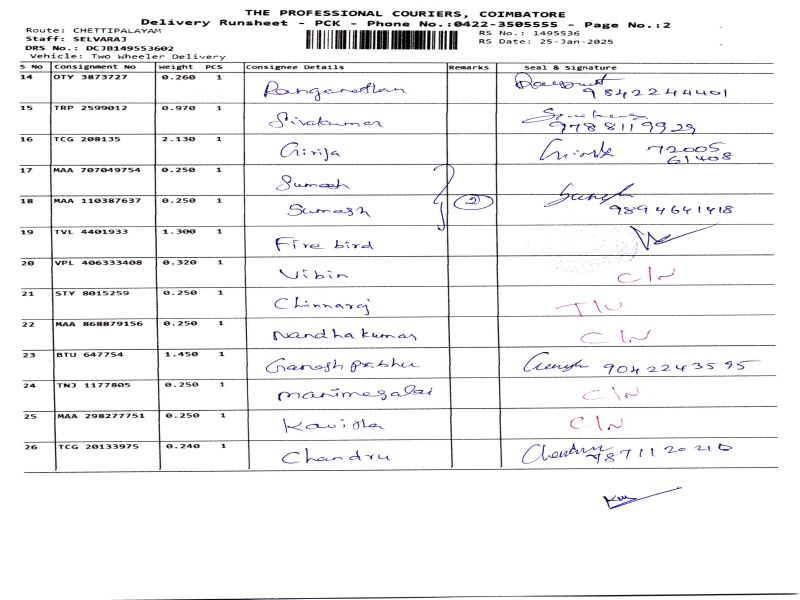 THE PROFESSIONAL COURIERS, COIMBATORE
Delivery Runsheet - PCK - Phone No.:0422-3505555 - Page No.:2
Route: CHETTIPALAYAM RS No.: 1495536
Staff: SELVARAJ RS Date: 25-Jan-2025
DRS No.: DCJB149553602
Vehicle: Two Wheeler Delivery
S No Consignment No Weight PCS Consignee Details Remarks Seal & Signature
14 OTY 3873727 0.260 1 Ranganathan 9842244401
15 TRP 2599012 0.970 1 Sivakumar 9788119929
16 TCG 208135 2.130 1 Girija 72005
61408
17 MAA 707049754 0.250 1 Sumesh
18 MAA 110387637 0.250 1 Sumesh 2 9894641418
19 TVL 4401933 1.300 1 Fire bird
20 VPL 406333408 0.320 1 Vibin C/N
21 STY 8015259 0.250 1 Chinnaraj
22 MAA 868879156 0.250 1 Nandhakumar C/N
23 BTU 647754 1.450 1 Ganesh prabhu Ganesh 9042243595
24 TNJ 1177805 0.250 1 Manimegalai C/N
25 MAA 298277751 0.250 1 Kavitha C/N
26 TCG 20133975 0.240 1 Chandru Chandru 7871120210